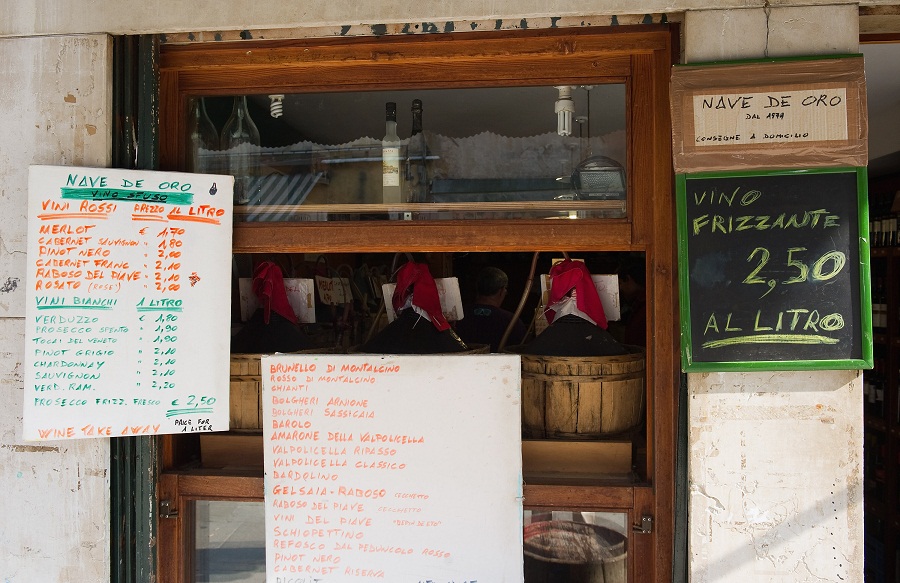 NAVE DE ORO
VINO SFUSO
VINI ROSSI PREZZO AL LITRO
MERLOT € 1,70
CABERNET SAUVIGNON " 1,80
PINOT NERO " 2,00
CABERNET FRANC " 2,10
RABOSO DEL PIAVE " 2,10
ROSATO (ROSE') " 2,00
VINI BIANCHI 1 LITRO
VERDUZZO € 1,80
PROSECCO SPENTO " 1,90
TOCAI DEL VENETO " 1,90
PINOT GRIGIO " 2,10
CHARDONNAY " 2,10
SAUVIGNON " 2,10
VERD. RAM. " 2,20
PROSECCO FRIZZ. FRESCO € 2,50
WINE TAKE AWAY PRICE FOR 1 LITER
BRUNELLO DI MONTALCINO
ROSSO DI MONTALCINO
CHIANTI
BOLGHERI ARNIONE
BOLGHERI SASSICAIA
BAROLO
AMARONE DELLA VALPOLICELLA
VALPOLICELLA RIPASSO
VALPOLICELLA CLASSICO
BARDOLINO
GELSAIA-RABOSO CECCHETTO
RABOSO DEL PIAVE CECCHETTO
VINI DEL PIAVE
SCHIOPPETTINO
REFOSCO DAL PEDUNCOLO ROSSO
PINOT NERO
CABERNET RISERVA
PICOLIT
NAVE DE ORO
DAL 1979
CONSEGNE A DOMICILIO
VINO
FRIZZANTE
2,50
AL LITRO